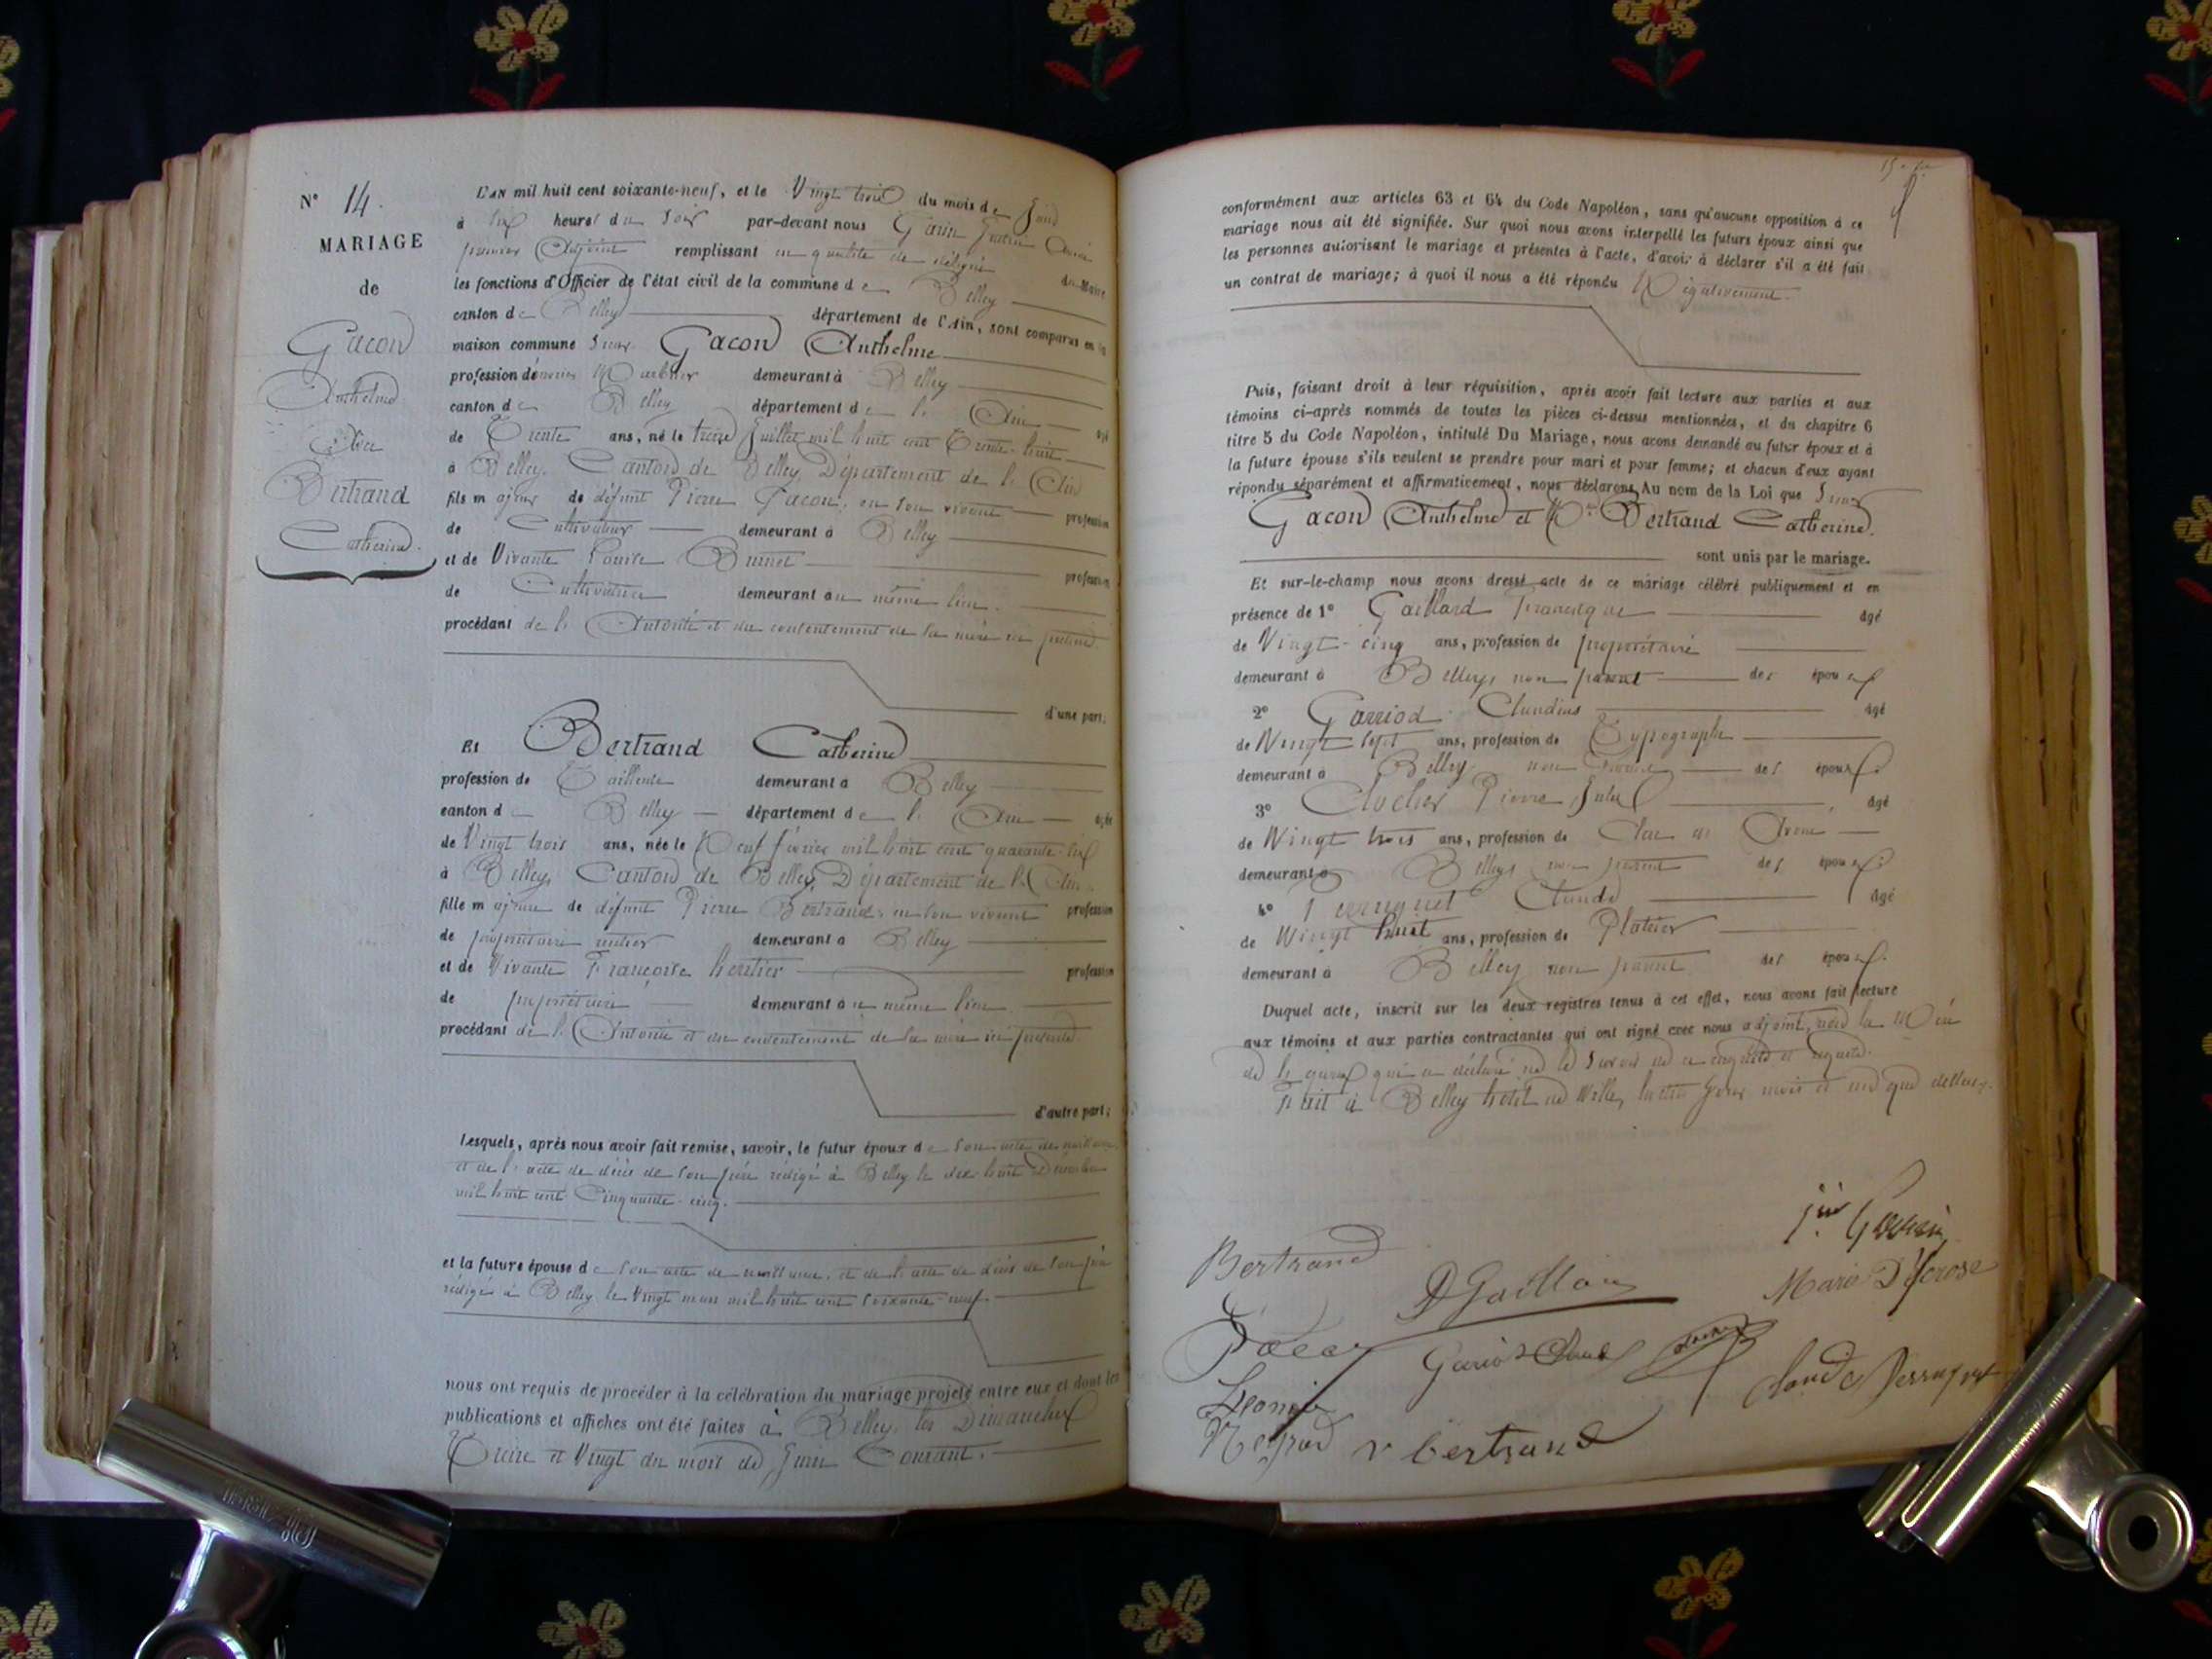 N° 14.
MARIAGE
de
Gacon
Anthelme
Bertrand
Catherine
L'AN mil huit cent soixante-neuf, et le Vingt trois du mois de Juin
à six heures du Soir par-devant nous
premier Adjoint remplissant en qualité de délégué du Maire
les fonctions d'Officier de l'état civil de la commune de Belley
canton de Belley département de l'Ain, sont comparus en la
maison commune Sieur Gacon Anthelme
profession d marbrier demeurant à Belley
canton de Belley département de l'Ain âgé
de Trente ans, né le treize Juillet mil huit cent Trente-huit
à Belley, Canton de Belley, Département de l'Ain
fils majeur de défunt Pierre Gacon, en son vivant profession
de Cultivateur demeurant à Belley
et de Vivante Louise profession
de Cultivatrice demeurant au même lieu.
procédant de l'Autorité et du consentement de sa mère ici présente.
d'une part.
Et Bertrand Catherine
profession de Tailleuse demeurant à Belley
canton de Belley département de l'Ain âgée
de Vingt trois ans, née le Neuf février mil huit cent quarante-six
à Belley, Canton de Belley, Département de l'Ain.
fille majeure de défunt Pierre Bertrand, en son vivant profession
de propriétaire rentier demeurant à Belley
et de Vivante Françoise héritier profession
de propriétaire demeurant au même lieu
procédant de l'Autorité et du consentement de sa mère ici présente.
d'autre part;
Lesquels, après nous avoir fait remise, savoir, le futur époux de son acte de naissance
et de l'acte de décès de son père rédigé à Belley le dix huit Décembre
mil huit cent Cinquante-cinq.
et la future épouse de son acte de naissance, et de l'acte de décès de son père
rédigé à Belley le Vingt mars mil huit cent soixante-neuf.
nous ont requis de procéder à la célébration du mariage projeté entre eux et dont les
publications et affiches ont été faites à Belley, les Dimanches
Treize et Vingt du mois de Juin Courant.
conformément aux articles 63 et 64 du Code Napoléon, sans qu'aucune opposition à ce
mariage nous ait été signifiée. Sur quoi nous avons interpellé les futurs époux ainsi que
les personnes autorisant le mariage et présentes à l'acte, d'avoir à déclarer s'il a été fait
un contrat de mariage; à quoi il nous a été répondu Négativement.
Puis, faisant droit à leur réquisition, après avoir fait lecture aux parties et aux
témoins ci-après nommés de toutes les pièces ci-dessus mentionnées, et du chapitre 6
titre 5 du Code Napoléon, intitulé Du Mariage, nous avons demandé au futur époux et à
la future épouse s'ils veulent se prendre pour mari et pour femme; et chacun d'eux ayant
répondu séparément et affirmativement, nous déclarons Au nom de la Loi que Sieur
Gacon Anthelme et Bertrand Catherine.
sont unis par le mariage.
Et sur-le-champ nous avons dressé acte de ce mariage célébré publiquement et en
présence de 1° Gaillard Francisque âgé
de Vingt-cinq ans, profession de propriétaire
demeurant à Belley, non parent des époux
2° Garriod Claudius âgé
de Vingt sept ans, profession de Typographe
demeurant à Belley non parent des époux.
3° Clocher Pierre Jules âgé
de Vingt trois ans, profession de Clerc d'Avoué
demeurant à Belley non parent des époux.
4° Perruquet Claude âgé
de Vingt huit ans, profession de Platrier
demeurant à Belley non parent des époux.
Duquel acte, inscrit sur les deux registres tenus à cet effet, nous avons fait lecture
aux témoins et aux parties contractantes qui ont signé avec nous adjoint, non la Mère
de l'époux qui a déclaré ne le savoir de ce enquise et requise.
Fait à Belley hôtel de Ville, lesdits jour mois et an que dessus.
Bertrand
Gacon
Claude Perruquet
Bertrand